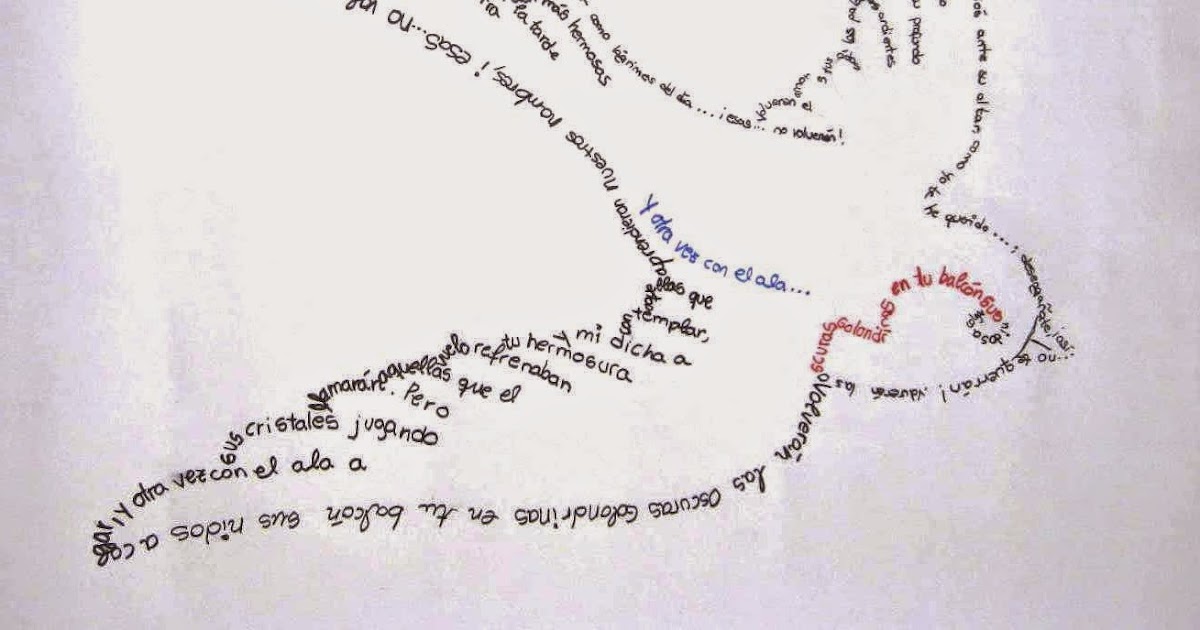 Volverán las oscuras golondrinas en tu balcón sus nidos a col
gar, Y otra vez con el ala a
sus cristales jugando
llamarán. Pero
aquellas que el
vuelo refrenaban
tu hermosura
y mi dicha a
contemplar,
aquellas que
aprendieran nuestros nombres, ¡ esas ...no
la tarde
más hermosas
como lágrimas del día....¡esas... no volverán!
Volverán
y tus
las
ardientes
tu profundo
ante su altar, como yo te
he querido....; desengáñate, ¡así
...no te querrán! Volverán las
oscuras golondrinas en tu balcón sus
Y otra vez con el ala...